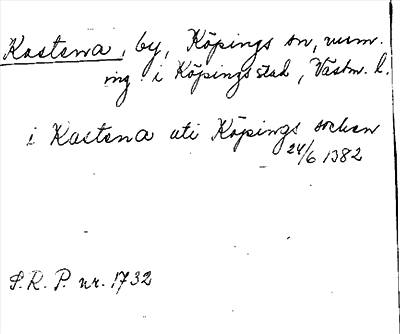 Kastena, by, Köpings sn, num.
ing. i Köpings stad, Västm. l.
i Kastena uti Köpings sochen
24/6 1382
S.R.P. nr. 1732